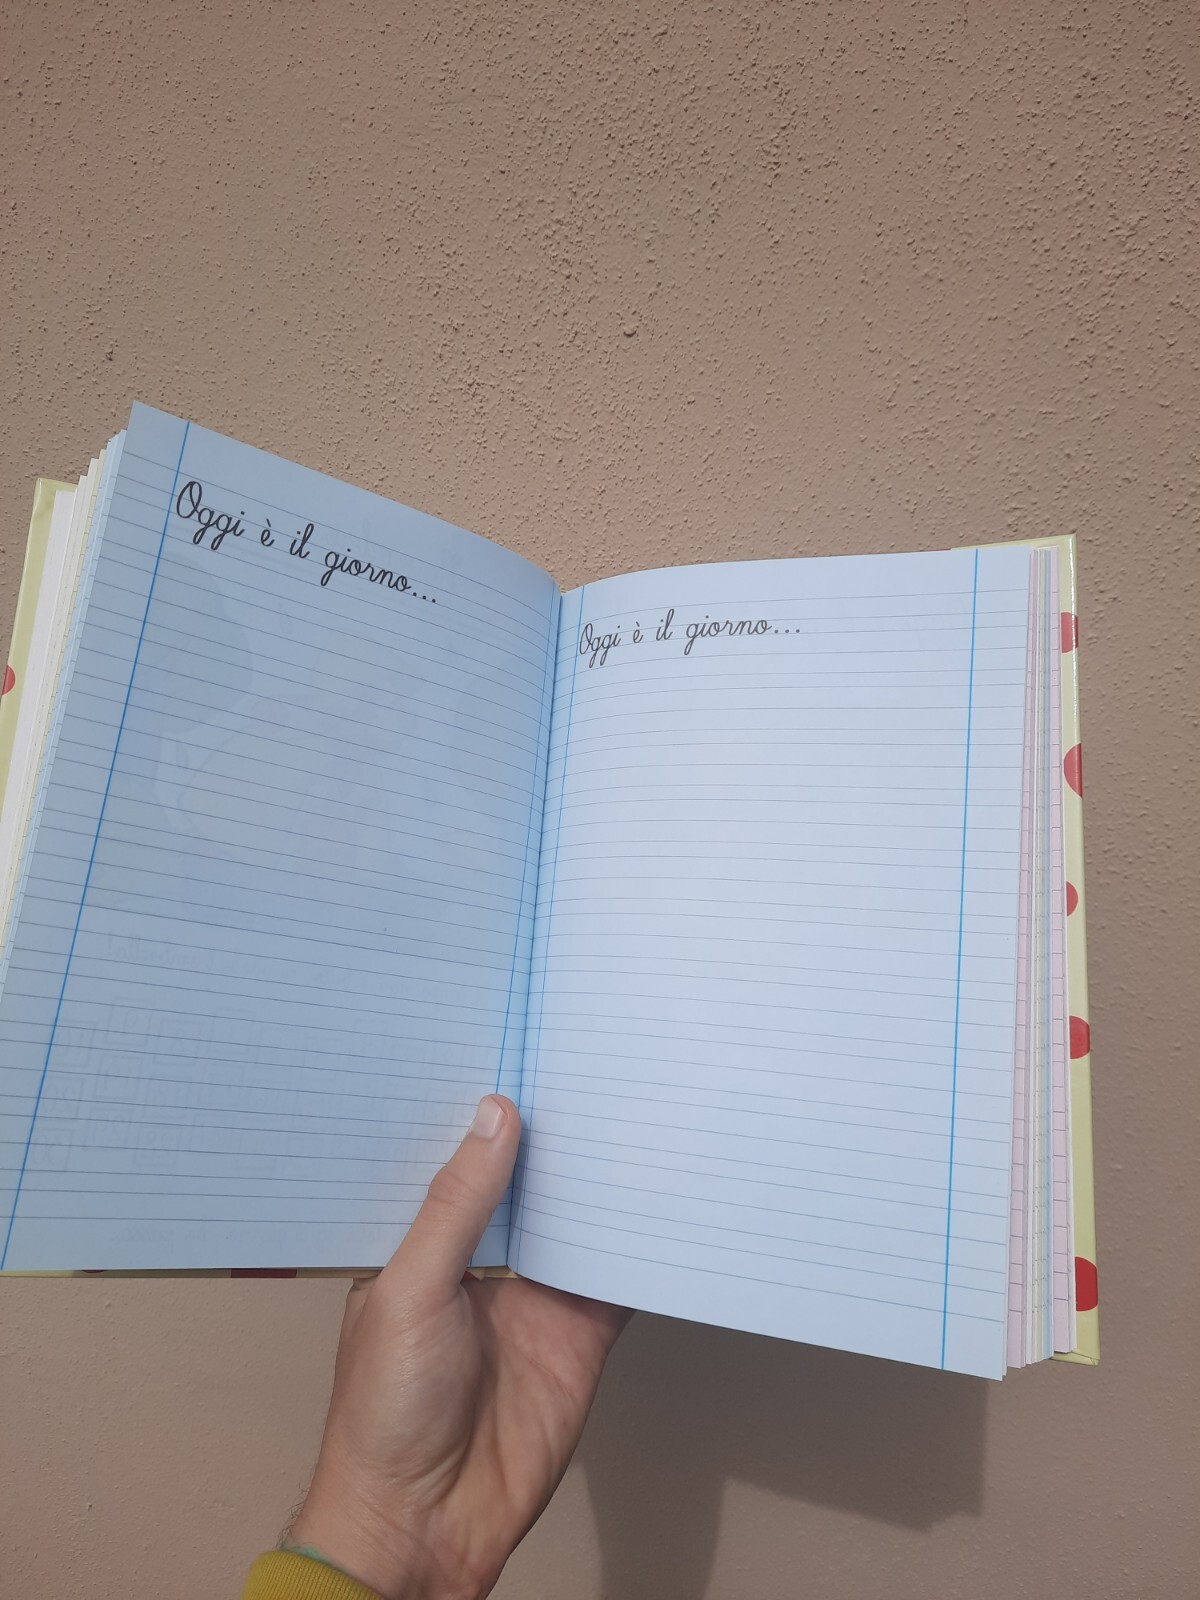 Oggi è il giorno...
Oggi è il giorno...